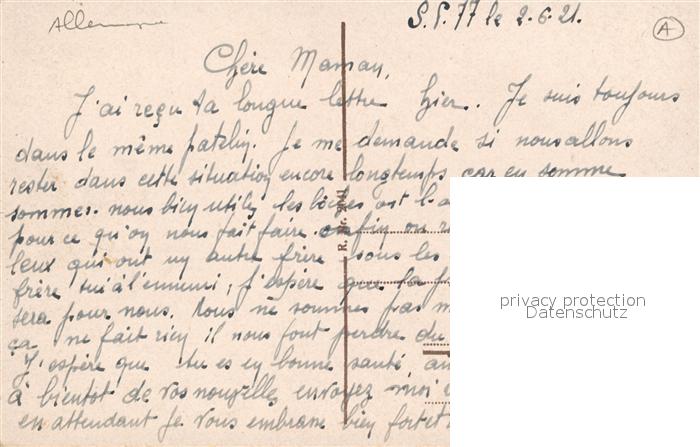 Allemagne
S.P. 77 le 2.6.21.
A
Chère Maman,
J'ai reçu ta longue lettre hier. Je suis toujours
dans le même patelin. Je me demande si nous allons
rester dans cette situation encore longtemps car en somme
sommes-nous bien utiles les boches ont l'a
pour ce qu'on nous fait faire. enfin on
ceux qui ont un autre frère sous les
frère tué à l'ennemi, j'espère que la
sera pour nous. Nous ne sommes pas m
ça ne fait rien il nous font perdre du
J'espère que tu es en bonne santé, au
à bientôt de vos nouvelles envoyez moi
en attendant je vous embrasse bien fort et
R. Nr. 2041
privacy protection
Datenschutz